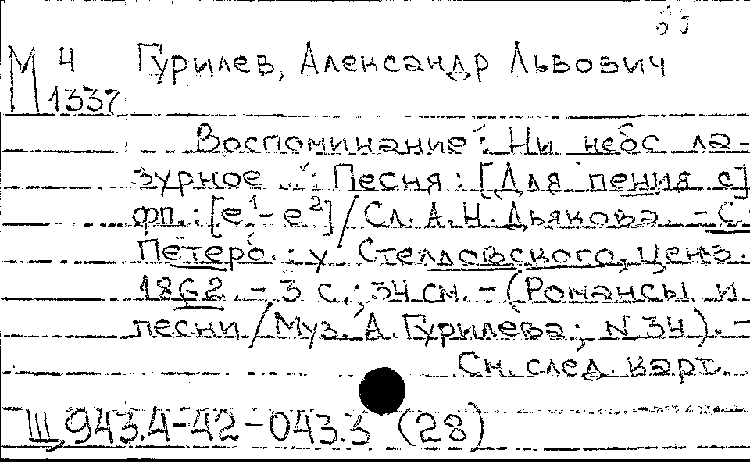 М 4 Гурилев, Александр Львович
1337
Воспоминание : Ни небо ла-
зурное ... : Песня : [Для пения с]
фп. : [e¹- e²] / Сл. А. Н. Дьякова. - С.
Петерб. : у Стелловского, ценз.
1862. - 3 с. ; 34 см. - (Романсы и
песни / Муз. А. Гурилева ; N 34). -
См. след. карт.
Ш 943.4-42-043.3 (28)